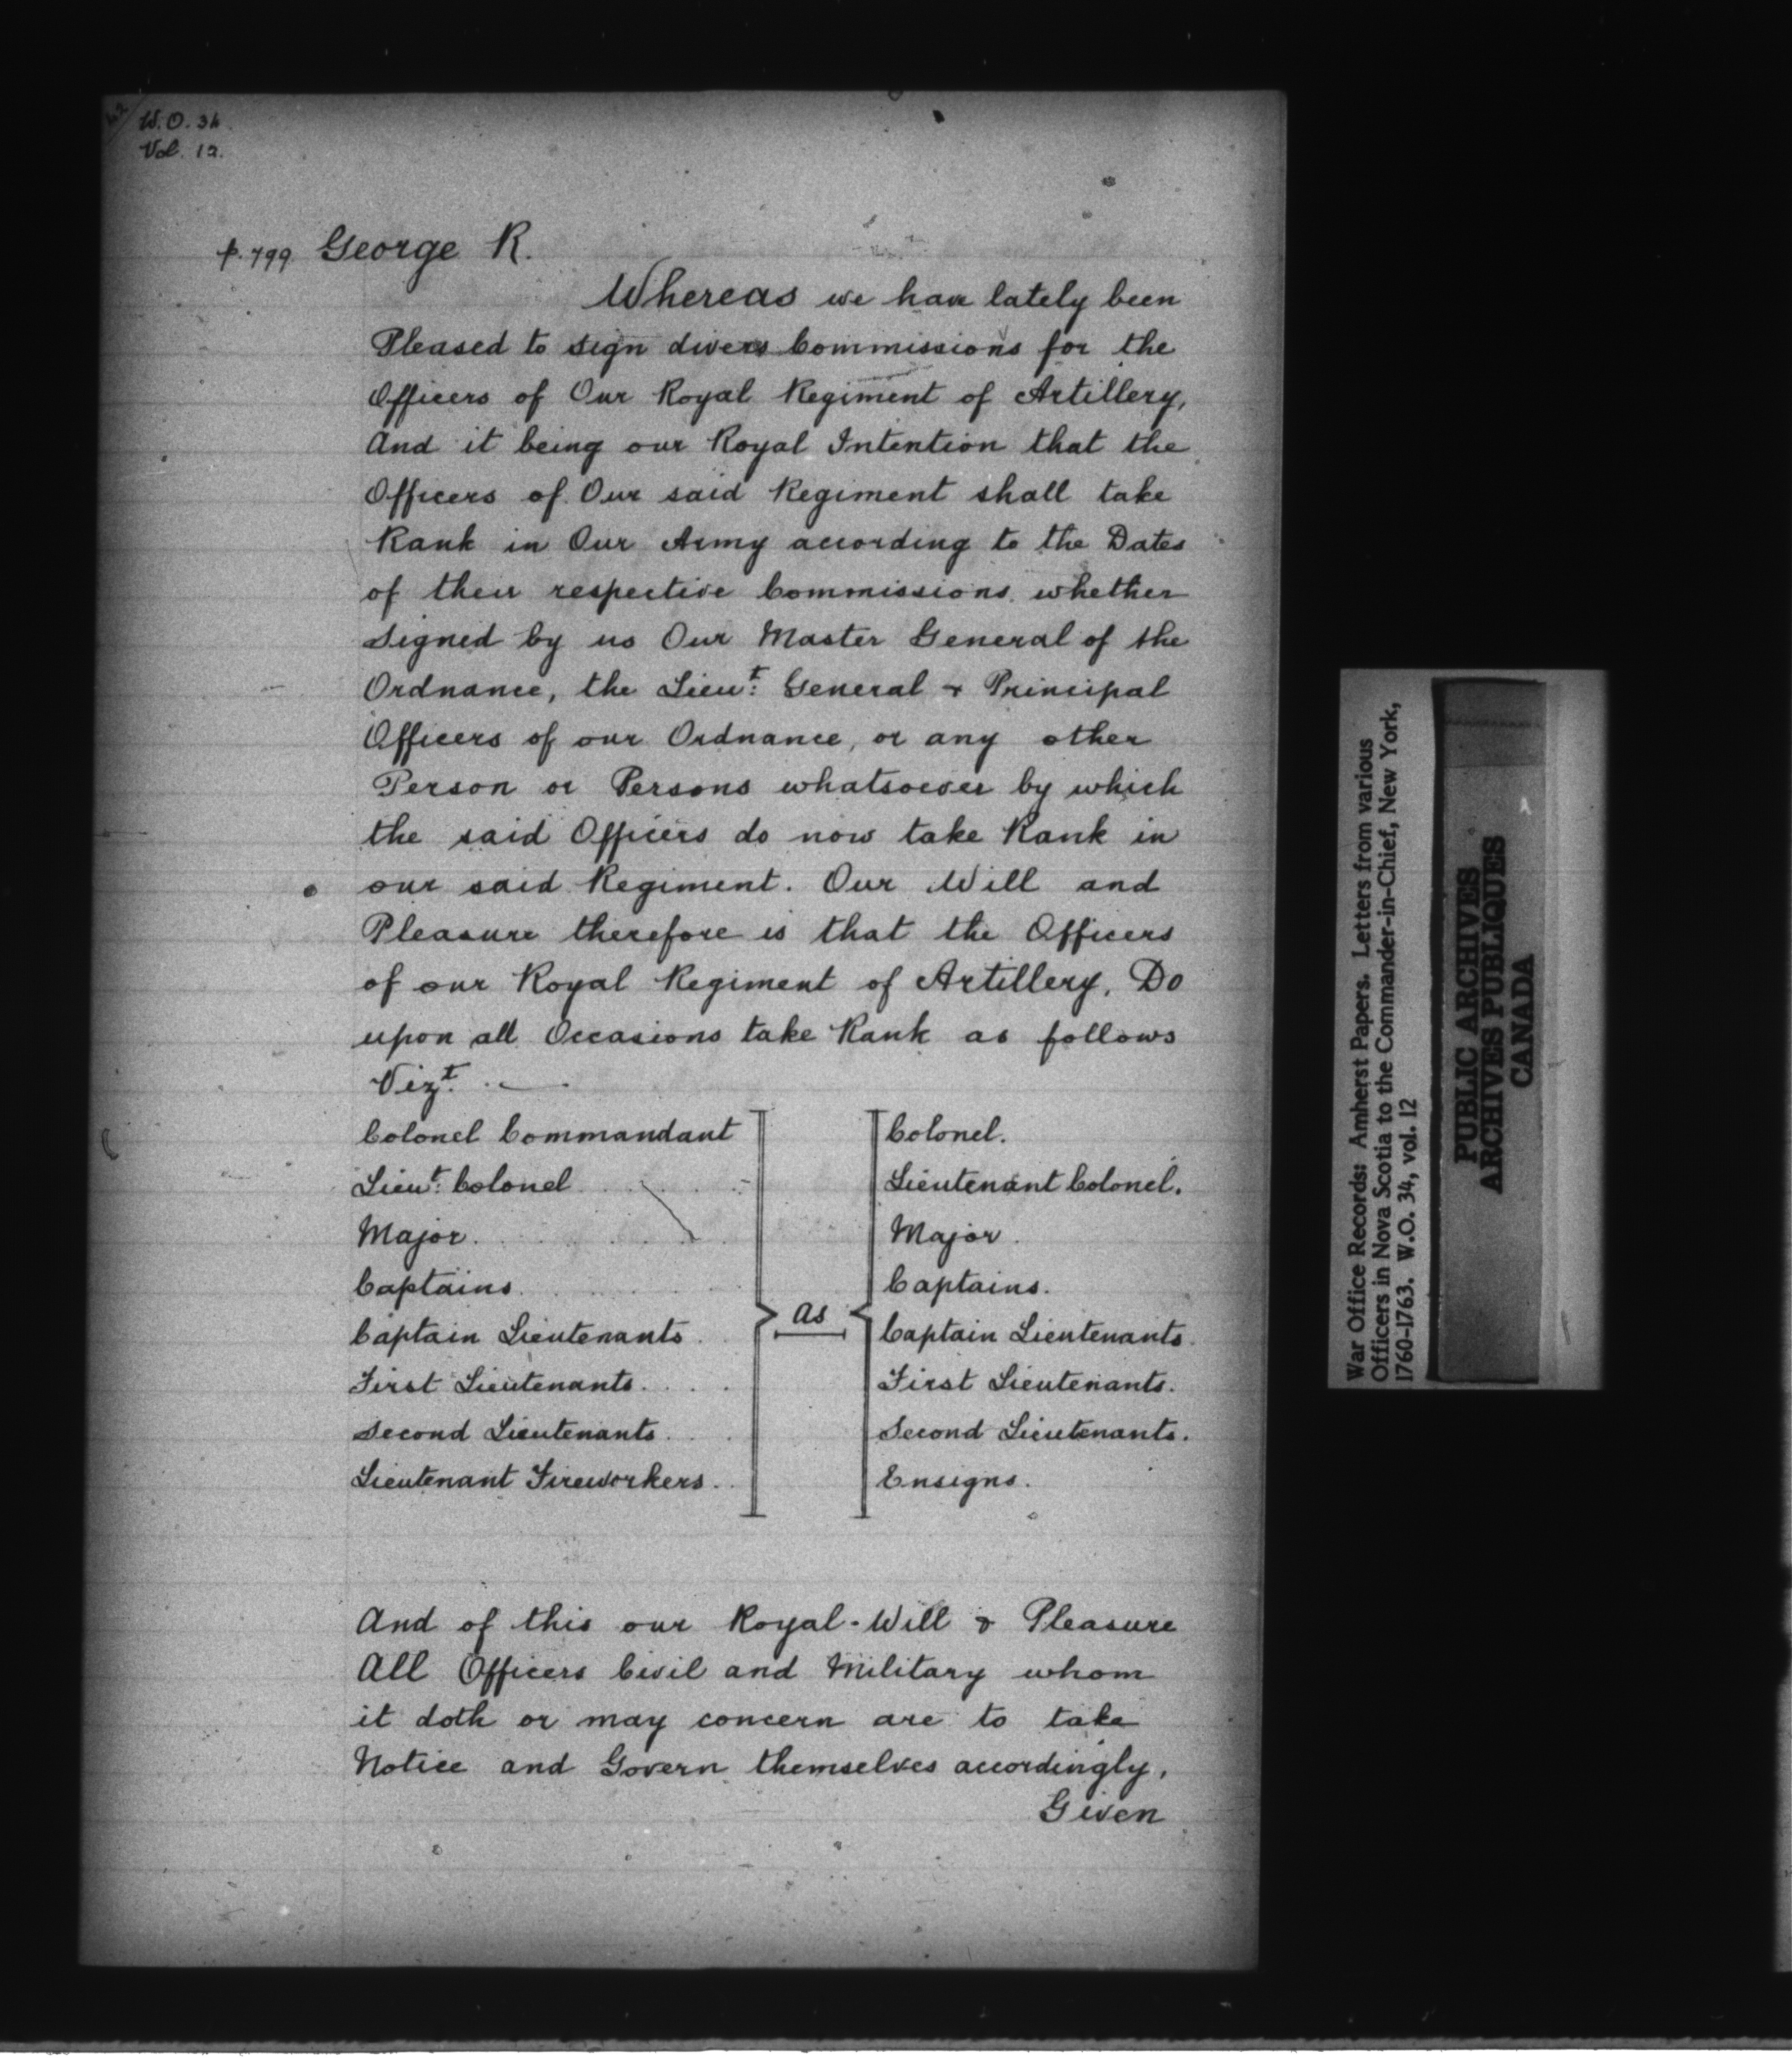 W.O. 34.
Vol. 12.
p. 799. George R.
Whereas we have lately been
Pleased to sign divers Commissions for the
Officers of Our Royal Regiment of Artillery,
And it being our Royal Intention that the
Officers of Our said Regiment shall take
Rank in Our Army according to the Dates
of their respective Commissions whether
Signed by us Our Master General of the
Ordnance, the Lieut: General & Principal
Officers of our Ordnance, or any other
Person or Persons whatsoever by which
the said Officers do now take Rank in
our said Regiment. Our Will and
Pleasure therefore is that the Officers
of our Royal Regiment of Artillery, Do
upon all Occasions take Rank as follows
Vizt.
Colonel Commandant Colonel.
Lieut: Colonel Lieutenant Colonel.
Major. Major.
Captains. Captains.
as
Captain Lieutenants. Captain Lieutenants.
First Lieutenants. First Lieutenants.
Second Lieutenants. Second Lieutenants.
Lieutenant Fireworkers. Ensigns.
And of this our Royal-Will & Pleasure
All Officers Civil and Military whom
it doth or may concern are to take
Notice and Govern themselves accordingly,
Given
War Office Records: Amherst Papers. Letters from various
Officers in Nova Scotia to the Commander-in-Chief, New York,
1760-1763. W.O. 34, vol. 12
PUBLIC ARCHIVES
ARCHIVES PUBLIQUES
CANADA